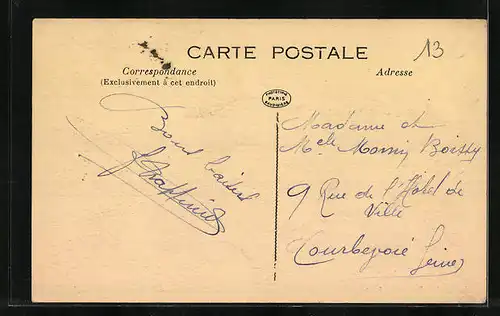 CARTE POSTALE
13
Correspondance
(Exclusivement à cet endroit)
Adresse
PARIS
Bons baisers
Madame et
Melle Boissy
9 Rue de l'Hôtel de
Ville
Courbevoie Seine